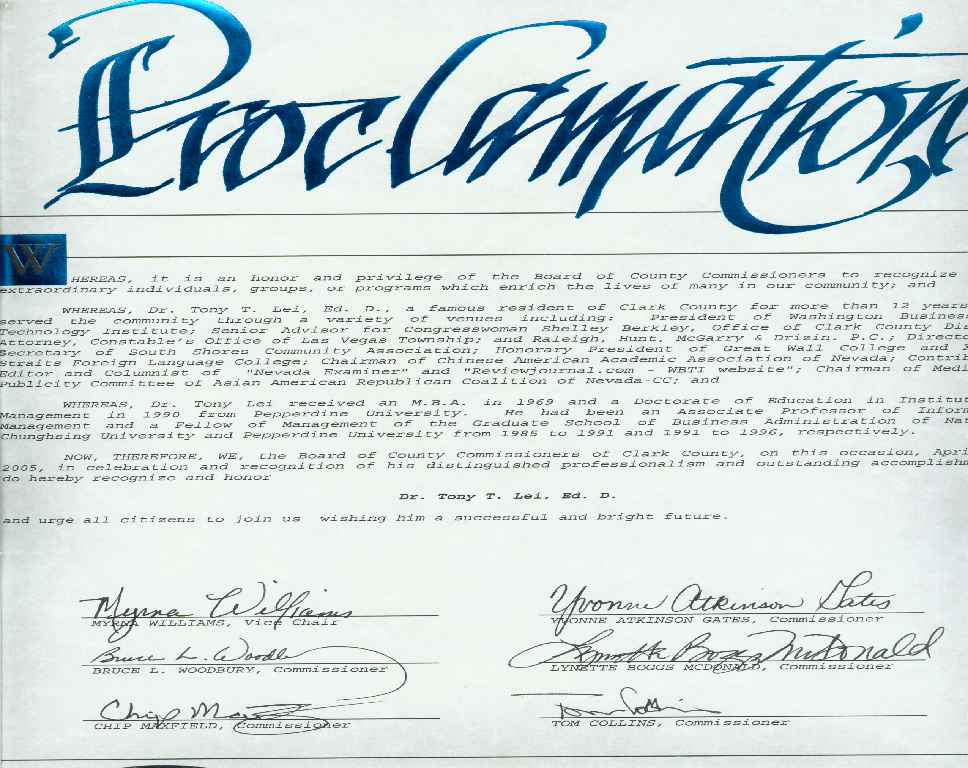 Proclamation
WHEREAS, it is an honor and privilege of the Board of County Commissioners to recognize
extraordinary individuals, groups, or programs which enrich the lives of many in our community; and
WHEREAS, Dr. Tony T. Lei, Ed. D., a famous resident of Clark County for more than 12 years
served the community through a variety of venues including: President of Washington Busines
Technology Institute; Senior Advisor for Congresswoman Shelley Berkley, Office of Clark County Dis
Attorney, Constable's Office of Las Vegas Township; and Raleigh, Hunt, McGarry & Drizin. P.C.; Directo
Secretary of South Shores Community Association; Honorary President of Great Wall College and X
Straits Foreign Language College; Chairman of Chinese American Academic Association of Nevada; Contrib
Editor and Columnist of "Nevada Examiner" and "Reviewjournal.com - WBTI website"; Chairman of Medi
Publicity Committee of Asian American Republican Coalition of Nevada-CC; and
WHEREAS, Dr. Tony Lei received an M.B.A. in 1969 and a Doctorate of Education in Institut
Management in 1990 from Pepperdine University. He had been an Associate Professor of Inform
Management and a Fellow of Management of the Graduate School of Business Administration of Nat
Chunghsing University and Pepperdine University from 1985 to 1991 and 1991 to 1996, respectively.
NOW, THEREFORE, WE, the Board of County Commissioners of Clark County, on this occasion, Apri
2005, in celebration and recognition of his distinguished professionalism and outstanding accomplishm
do hereby recognize and honor
Dr. Tony T. Lei, Ed. D.
and urge all citizens to join us wishing him a successful and bright future.
Myrna Williams
MYRNA WILLIAMS, Vice Chair
Yvonne Atkinson Gates
YVONNE ATKINSON GATES, Commissioner
Bruce L. Woodb
BRUCE L. WOODBURY, Commissioner
Lynette Boggs McDonald
LYNETTE BOGGS MCDONALD, Commissioner
Chip Max
CHIP MAXFIELD, Commissioner
Tom Collins
TOM COLLINS, Commissioner